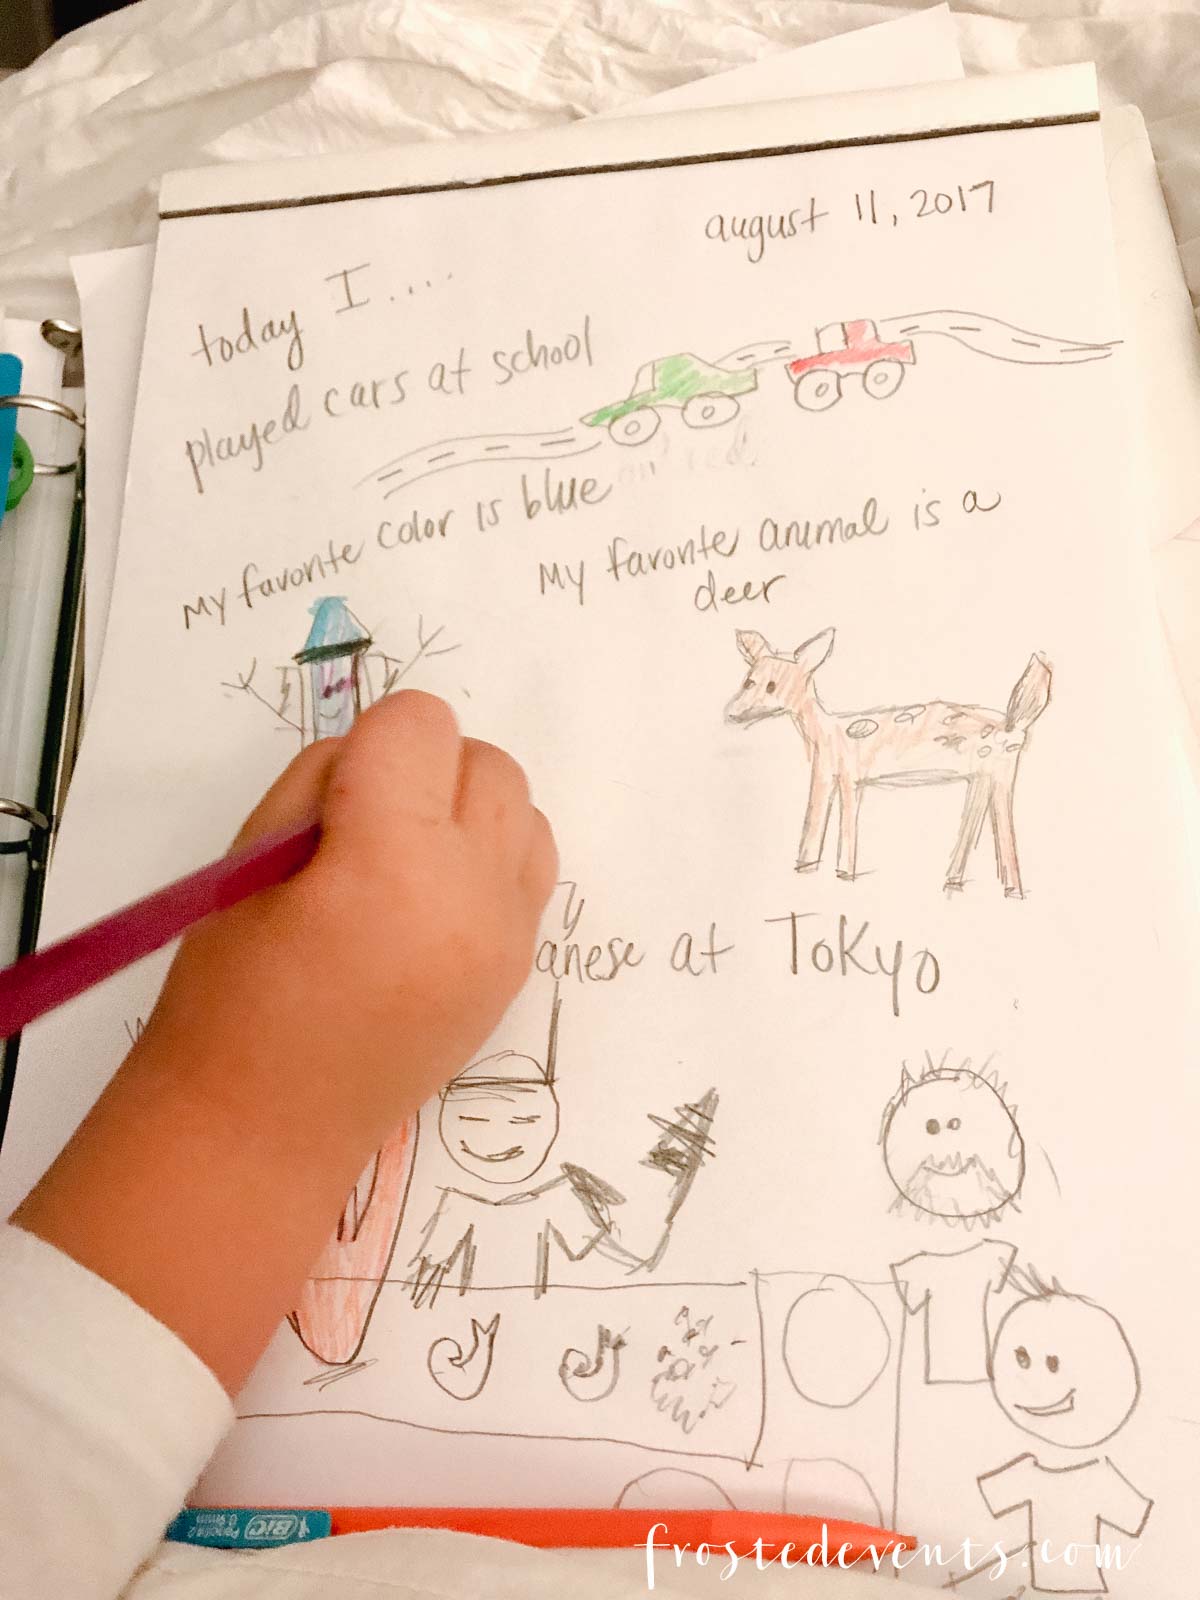 august 11, 2017
today I....
played cars at school
My favorite color is blue
My favorite animal is a
deer
anese at Tokyo
BIC
frostedevents.com